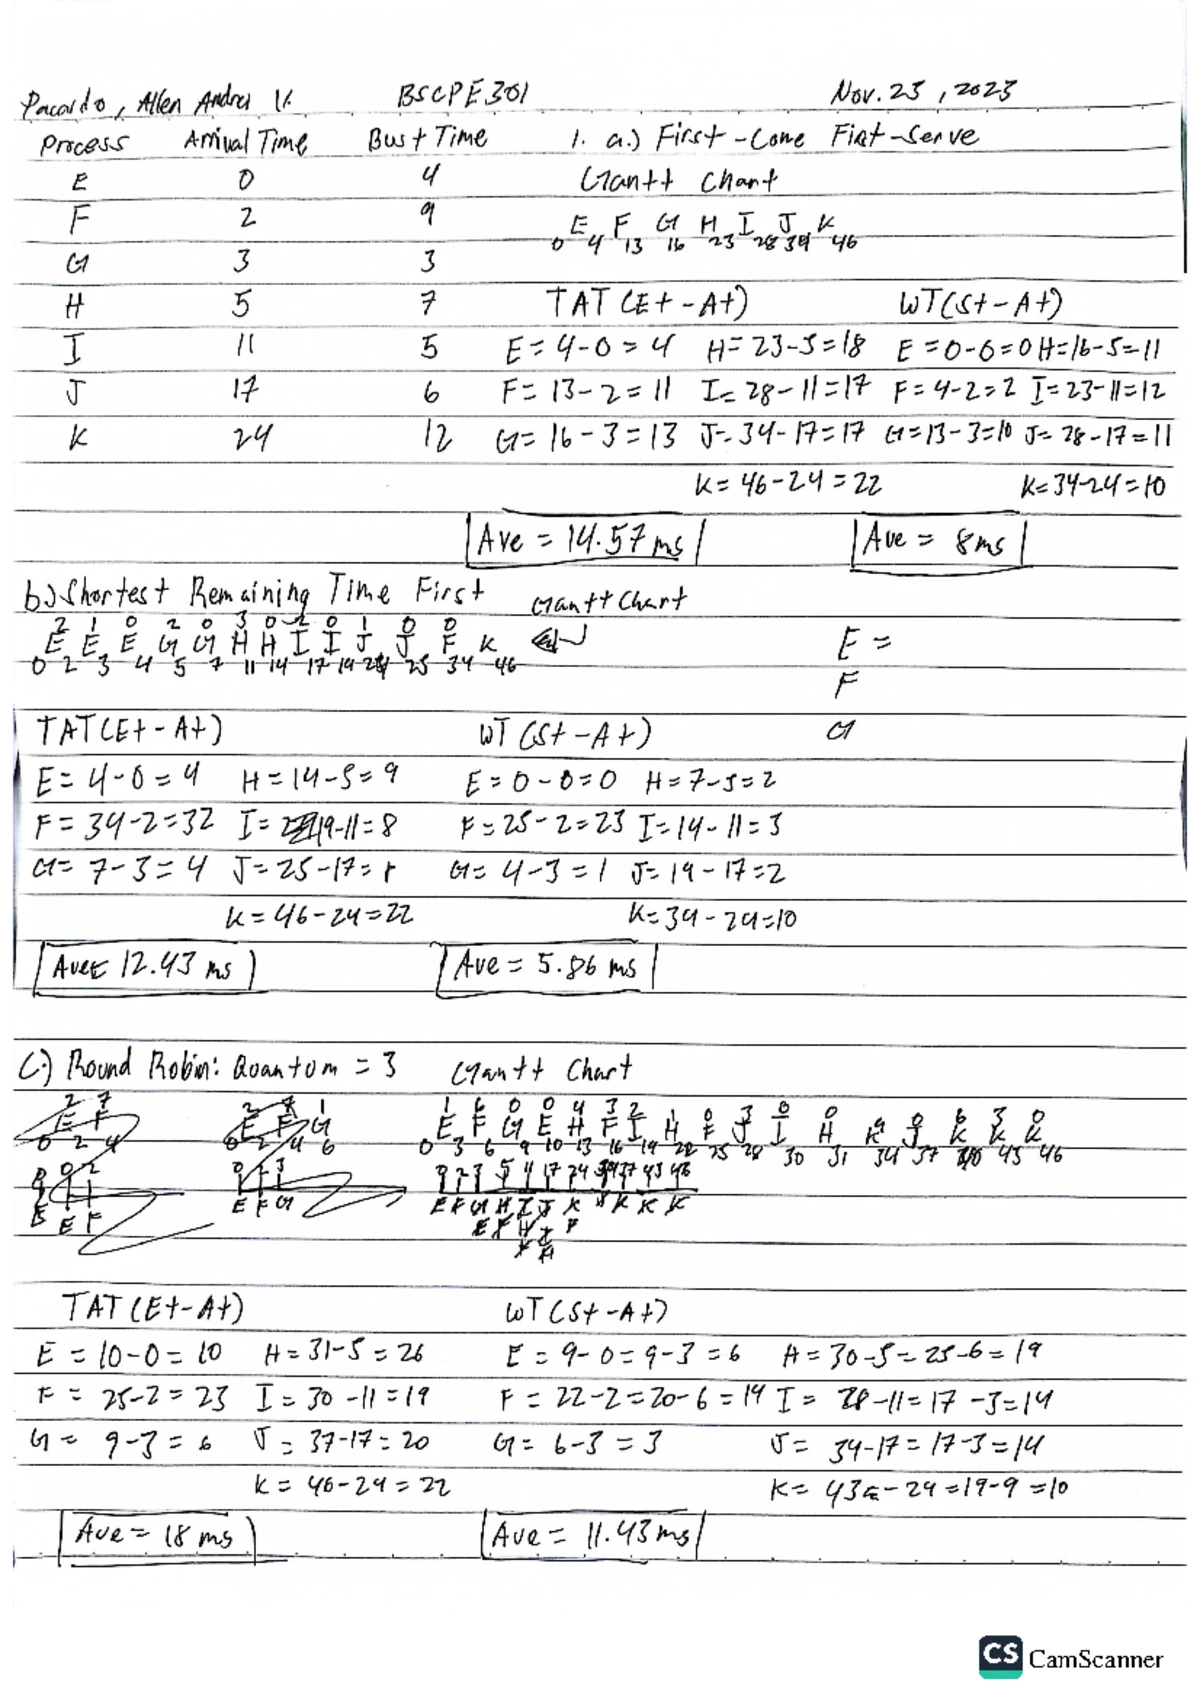 Pacardo, Allen Andrei V. BSCPE301 Nov. 23, 2023
Process Arrival Time Bust Time 1. a.) First-Come First-Serve
E 0 4 Gantt Chart
F 2 9 E F G H I J K
0 4 13 16 23 28 34 46
G 3 3
H 5 7 TAT(Et-At) WT(St-At)
I 11 5 E=4-0=4 H=23-5=18 E=0-0=0 H=16-5=11
J 17 6 F=13-2=11 I=28-11=17 F=4-2=2 I=23-11=12
K 24 12 G=16-3=13 J=34-17=17 G=13-3=10 J=28-17=11
K=46-24=22 K=34-24=10
Ave = 14.57 ms Ave = 8ms
b.) Shortest Remaining Time First Gantt Chart
2 1 0 2 0 3 0 2 0 1 0 0
E E E G G H H I I J J F K E =
0 2 3 4 5 7 11 14 17 19 24 25 34 46 F
G
TAT(Et-At) WT(St-At)
E=4-0=4 H=14-5=9 E=0-0=0 H=7-5=2
F=34-2=32 I=19-11=8 F=25-2=23 I=14-11=3
G=7-3=4 J=25-17= G=4-3=1 J=19-17=2
K=46-24=22 K=34-24=10
Ave= 12.43 ms Ave = 5.86 ms
C.) Round Robin: Quantum = 3 Gantt Chart
1 6 0 0 4 3 2 1 0 3 0 0 9 0 6 3 0
E F G E H F I H F J I H K J K K K
0 3 6 9 10 13 16 19 22 25 28 30 31 34 37 40 43 46
TAT(Et-At) WT(St-At)
E=10-0=10 H=31-5=26 E=9-0=9-3=6 H=30-5=25-6=19
F=25-2=23 I=30-11=19 F=22-2=20-6=14 I=28-11=17-3=14
G=9-3=6 J=37-17=20 G=6-3=3 J=34-17=17-3=14
K=46-24=22 K=43-24=19-9=10
Ave = 18 ms Ave = 11.43 ms
CS CamScanner